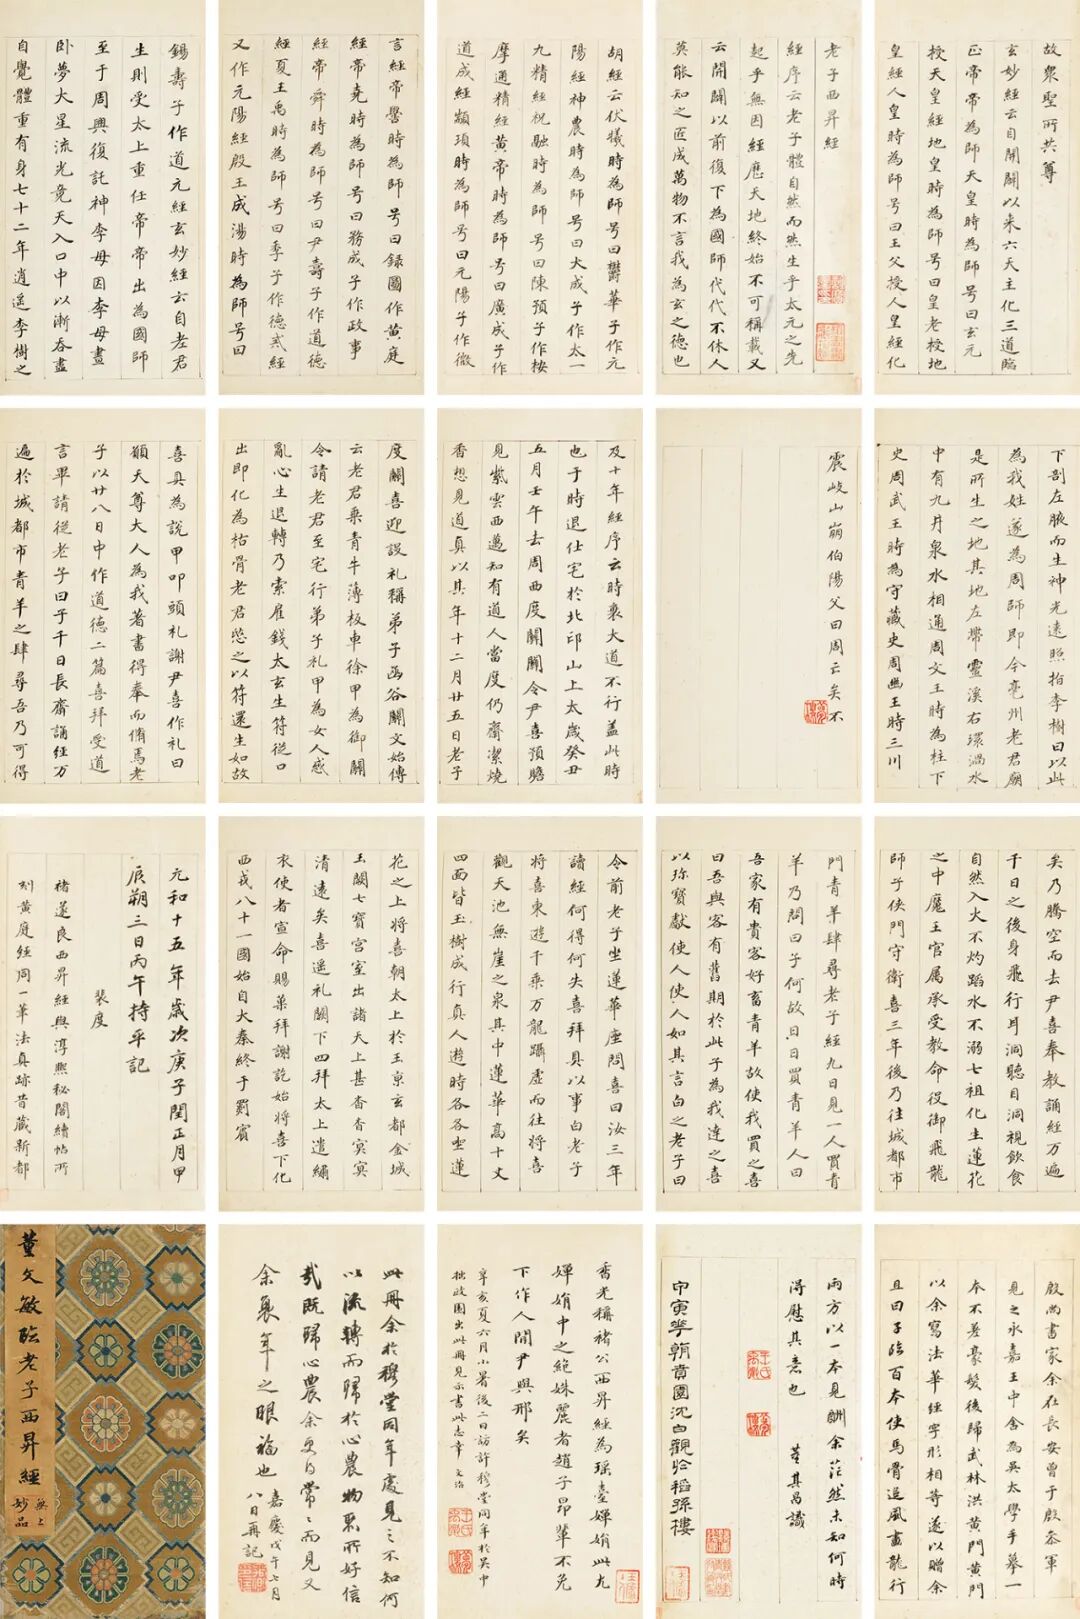 老子西昇經
經序云老子體自然而然生乎太元之先
起乎無因經歷天地終始不可稱載又
云開闢以前復下為國師代代不休人
莫能知之匠成萬物不言我為玄之德也
故眾聖所共尊
玄妙經云自開闢以來六天主化三道臨
正帝帝為師天皇時為師号曰玄元
授天皇經地皇時為師号曰皇老授地
皇經人皇時為師号曰王父授人皇經化
胡經云伏犧時為師号曰欝華子作元
陽經神農時為師号曰大成子作太一
九精經祝融時為師号曰陳預子作按
摩通精經黃帝時為師号曰廣成子作
道成經顓頊時為師号曰元陽子作微
言經帝嚳時為師号曰録圖作黄庭
經帝堯時為師号曰務成子作政事
經帝舜時為師号曰尹壽子作道德
經夏王禹時為師号曰季子作德戒經
又作元陽經殷王成湯時為師号曰
錫壽子作道元經玄妙經云自老君
生則受太上重任帝帝出為國師
至于周興復託神李母因李母晝
卧夢大星流光竟天入口中以漸吞盡
自覺體重有身七十二年逍遥李樹之
下剖左腋而生神光遠照指李樹曰以此
為我姓遂為周師即今亳州老君廟
是所生之地其地左帶靈溪右環渦水
中有九井泉水相通周文王時為柱下
史周武王時為守藏史周幽王時三川
震岐山崩伯陽父曰周云矣不
及十年經序云時衰大道不行蓋此時
也于時退仕宅於北邙山上太歲癸丑
五月壬午去周西度關關令尹喜預瞻
見紫雲西邁知有道人當度仍齋潔燒
香想見道真以其年十二月廿五日老子
度關喜迎設礼稱弟子函谷關文始傳
云老君乘青牛薄板車徐甲為御關
令請老君至宅行弟子礼甲為女人感
亂心生退轉乃索雇錢太玄生符從口
出即化為枯骨老君愍之以符還生如故
喜具為說甲叩頭礼謝尹喜作礼曰
願天尊大人為我著書得奉而脩焉老
子以廿八日中作道德二篇喜拜受道
言畢請從老子曰子千日長齋誦經万
遍於城都市青羊之肆尋吾乃可得
矣乃騰空而去尹喜奉教誦經万遍
千日之後身飛行耳洞聽目洞視飲食
自然入火不灼蹈水不溺七祖化生蓮花
之中魔王官属承受教命役御飛龍
師子俠門守衛喜三年後乃往城都市
門青羊肆尋老子經九日見一人買青
羊乃問曰子何故日日買青羊人曰
吾家有貴客好畜青羊故使我買之喜
曰吾與客有舊期於此子為我達之喜
以珎寶獻使人使人如其言白之老子曰
令前老子坐蓮華座問喜曰汝三年
讀經何得何失喜拜具以事白老子
將喜東遊千乘万龍躡虛而往將喜
觀天池無崖之泉其中蓮華高十丈
四面皆玉樹成行真人遊時各各坐蓮
花之上將喜朝太上於玉京玄都金城
玉闕七寶宮室出諸天上甚杳杳冥冥
清遠矣喜遥礼闕下四拜太上遣繡
衣使者宣命賜藥拜謝訖始將喜下化
西戎八十一國始自大秦終于罽賓
元和十五年歲次庚子閏正月甲
辰朔三日丙午持平記
裴度
褚遂良西昇經與淳熙秘閣續帖所
刻黃庭經同一筆法真跡昔藏新都
殷尚書家余在長安曾于殷參軍
見之永嘉王中舍為吳太學手摹一
本不差豪髮後歸武林洪黃門黃門
以余寫法華經字形相等遂以贈余
且曰子臨百本使馬骨追風畫龍行
雨方以一本見酬余茫然未知何時
得慰其意也 董其昌識
甲寅花朝賁園沈白觀於稻孫樓
香光稱褚公西昇經為瑤臺嬋娟此尤
嬋娟中之絶姝麗者趙子昂輩不免
下作人間尹與邢矣
辛亥夏六月小暑後二日訪許穆堂同年於吳中
拙政園出此冊見示書此志幸 文治
此冊余於穆堂同年處見之不知何
以流轉而歸於心農物聚所好信
哉既歸心農余更得常常而見又
余衰年之眼福也 嘉慶戊午七月
八日再記
董文敏臨老子西昇經
無上
妙品